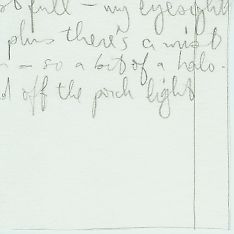 full - my eyesight
plus there's a mist
- so a bit of a halo.
off the porch light